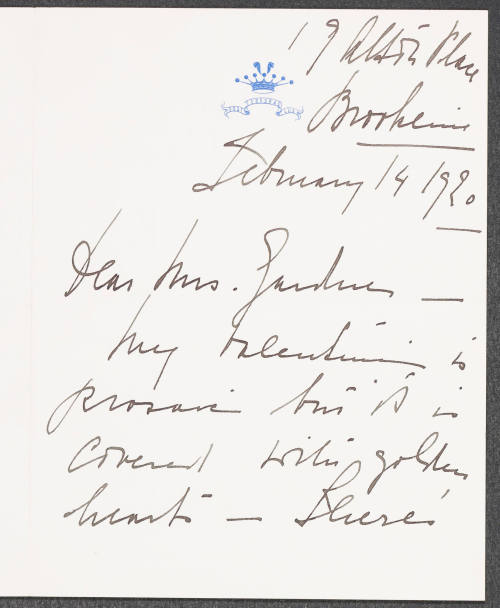 19 Alton Place
Brookline
February 14 1920
Dear Mrs. Gardner —
My valentine is
prosaic but it is
covered with golden
hearts — There's